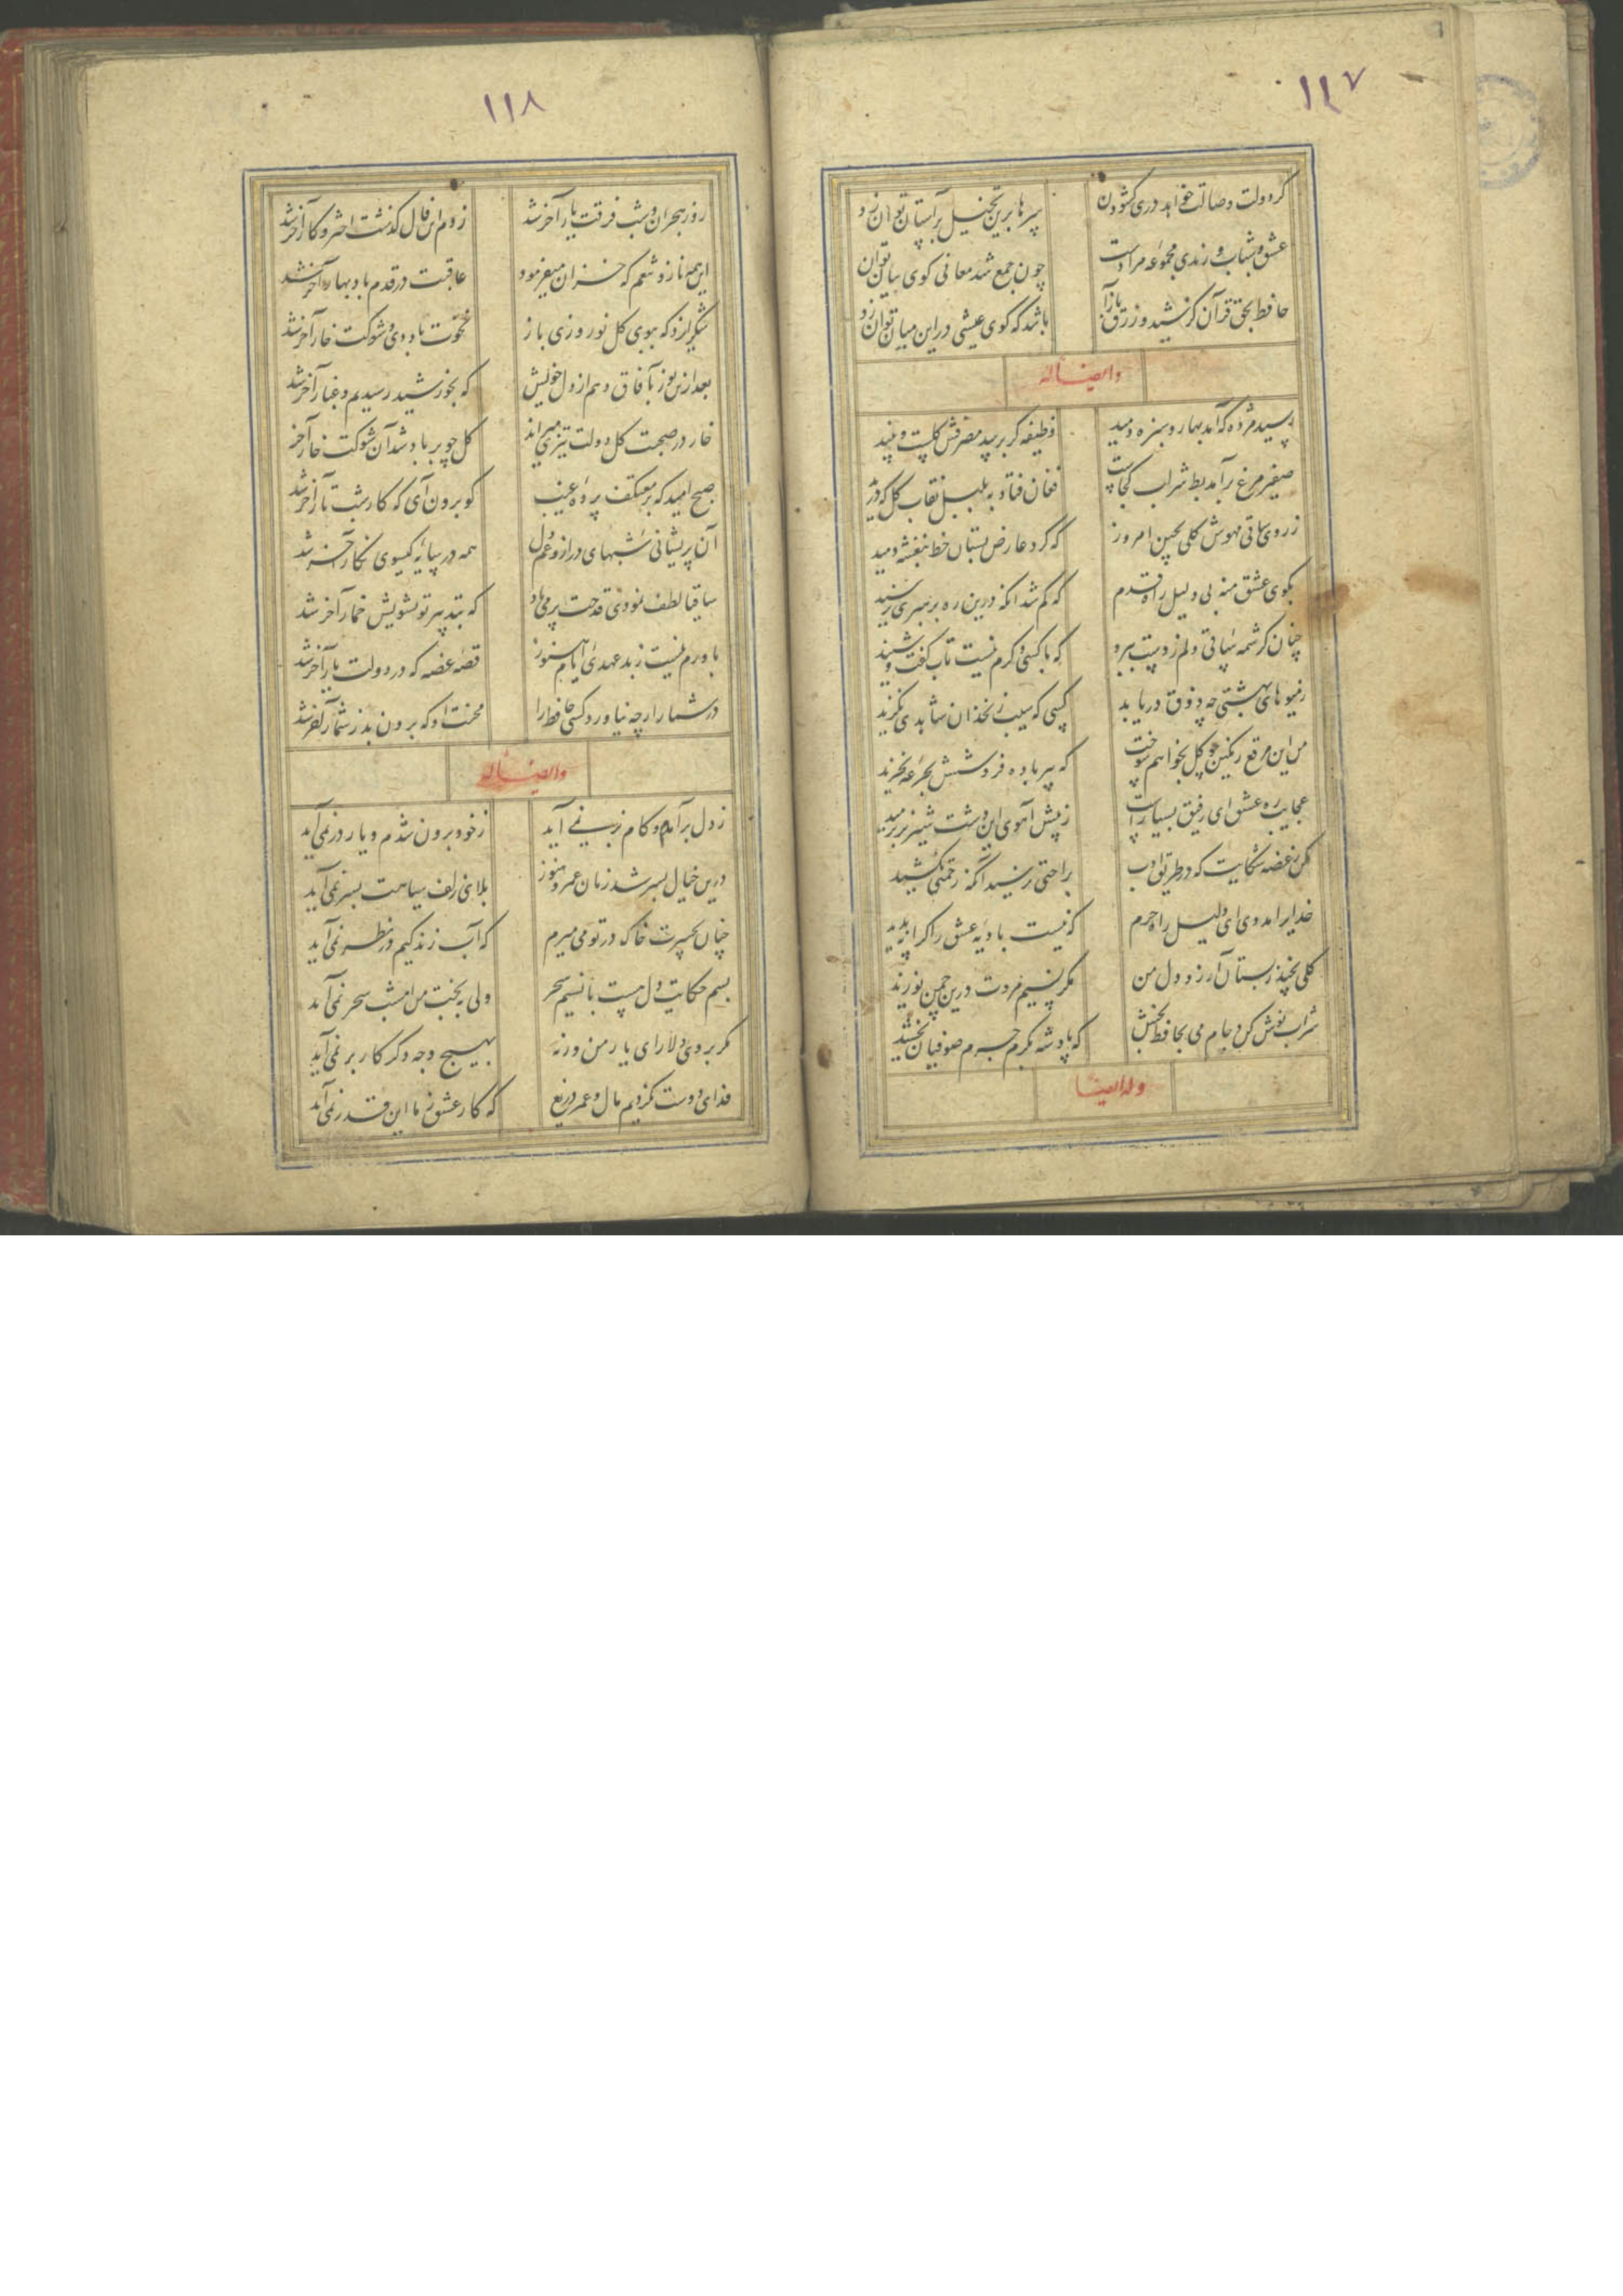 ۱۱۷
کر دولت وصالت خواهد دری کشودن سرها برین تخیل بر آستان توان زد
عشق و شباب و رندی مجموعه مرادست چون جمع شد معانی کوی بیان توان
حافظ بحق قرآن کز شید و زرق بازآ باشد که کوی عیشی در این میان توان زد
وایضاله
رسید مژده که آمد بهار و سبزه دمید وظیفه کر برسد مصرفش کلست و نبید
صفیر مرغ برآمد بط شراب کجاست فغان فتاد به بلبل نقاب کل که درید
ز روی ساقی مهوش کلی بچین امروز که کرد عارض بستان خط بنفشه دمید
بکوی عشق منه بی دلیل راه قدم که کم شد انکه درین ره برهبری نرسید
چنان کرشمه ساقی دلم ز دست ببرد که با کسی دکرم نیست تاب کفت و شنید
ز میوهای بهشتی چه ذوق دریابد کسی که سیب زنخدان شاهدی نکزید
من این مرقع رنکین چو کل بخواهم سوخت که پیر باده فروشش بجرعه نخرید
عجایب ره عشق ای رفیق بسیارست ز پیش آهوی این دشت شیر نر برمید
مکن ز غصه شکایت که در طریق ادب براحتی نرسید آنکه زحمتی نکشید
خدایرا مددی ای دلیل راه حرم که نیست بادیه عشق را کرانه پدید
کلی نچید ز بستان آرزو دل من مکر نسیم مروت درین چمن نوزید
شراب نوش کن و جام می بحافظ بخش که پادشه بکرم جرم صوفیان بخشید
وله ایضا
۱۱۸
روز هجران و شب فرقت یار آخر شد زدم این فال کذشت اختر و کار آخر شد
این همه ناز و تنعم که خزان میفرمود عاقبت در قدم باد بهار آخر شد
شکر ایزد که ببوی کل نوروزی باز نخوت باد دی و شوکت خار آخر شد
بعد ازین نور بآفاق دهم از دل خویش که بخورشید رسیدیم و غبار آخر شد
خار در صحبت کل دولت تیزی میراند کل چو بر باد شد آن شوکت خار آخر
صبح امید که بد معتکف پرده غیب کو برون آی که کار شب تار آخر شد
آن پریشانی شبهای دراز و غم دل همه در سایه کیسوی نکار آخر شد
ساقیا لطف نمودی قدحت پر می باد که بتدبیر تو تشویش خمار آخر شد
باورم نیست ز بد عهدی ایام هنوز قصه غصه که در دولت یار آخر شد
در شمار ارچه نیاورد کسی حافظ را محنت او که برون بد ز شمار آخر شد
وایضاله
ز دل برآمدم و کام بر نمی آید ز خود برون شدم و یار در نمی آید
درین خیال بسر شد زمان عمر و هنوز بلای زلف سیاهت بسر نمی آید
چنان بحسرت خاک در تو می میرم که آب زندکیم در نظر نمی آید
بسم حکایت دل هست با نسیم سحر ولی به بخت من امشب سحر نمی آید
مکر بروی دلارای یار من ورنه بهیچ وجه دکر کار بر نمی آید
فدای دوست نکردیم مال و عمر دریغ که کار عشق ز ما این قدر نمی آید